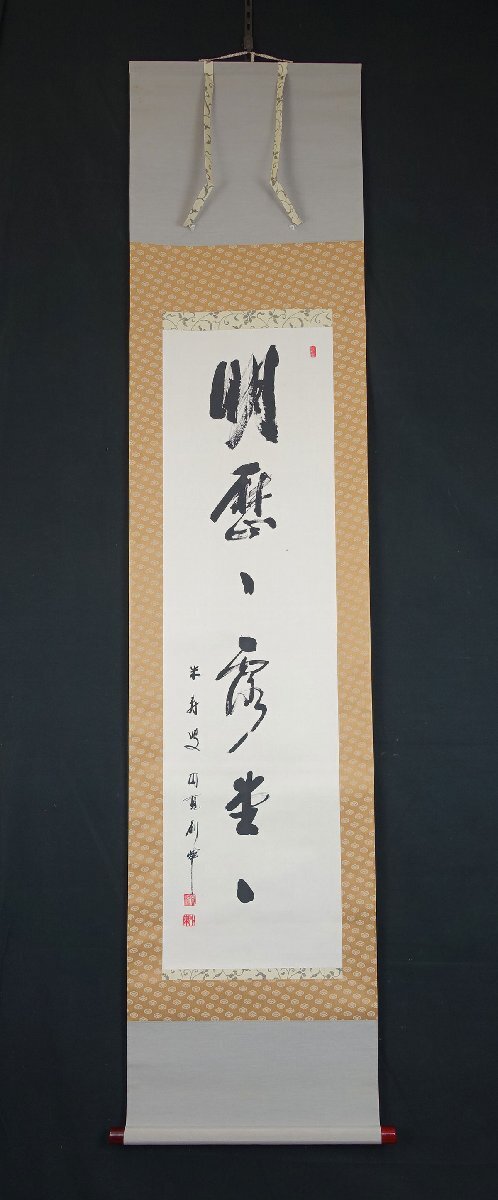 明歴々露堂々
米寿叟